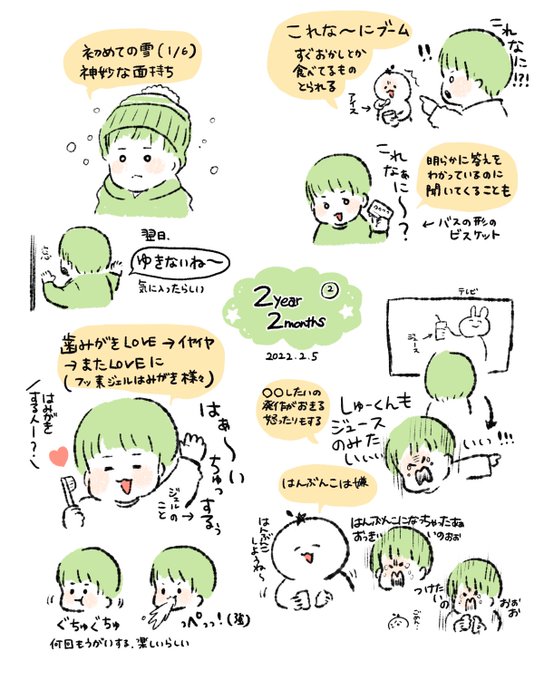 初めての雪(1/6)
神妙な面持ち
翌日、
ゆきないね〜
気に入ったらしい
これな〜にブーム
すぐおかしとか
食べてるもの
とられる
アイス
!!
これなに!?!
これなぁに〜?
明らかに答えを
わかっているのに
聞いてくることも
← バスの形の
ビスケット
2year
2months
②
2022.2.5
歯みがきLOVE→イヤイヤ
→またLOVEに
(フッ素ジェルはみがき様々)
はみがき
する人ー?
はぁ〜い
ちゅっ
するぅ
ジェルの
こと
ぐちゅぐちゅ
っぺっっ!(強)
何回もうがいする、楽しいらしい
テレビ
ジュース
○○したいの
発作がおきる
怒ったりもする
しゅーくんも
ジュース
のみた
いぃぃ
いぃぃ!!!
はんぶんこは嫌
はんぶんこ
しようね〜
はんぶんこになっちゃったぁぁ
おっきぃ
いのぉぉ
つけたい
の
おぉぉ